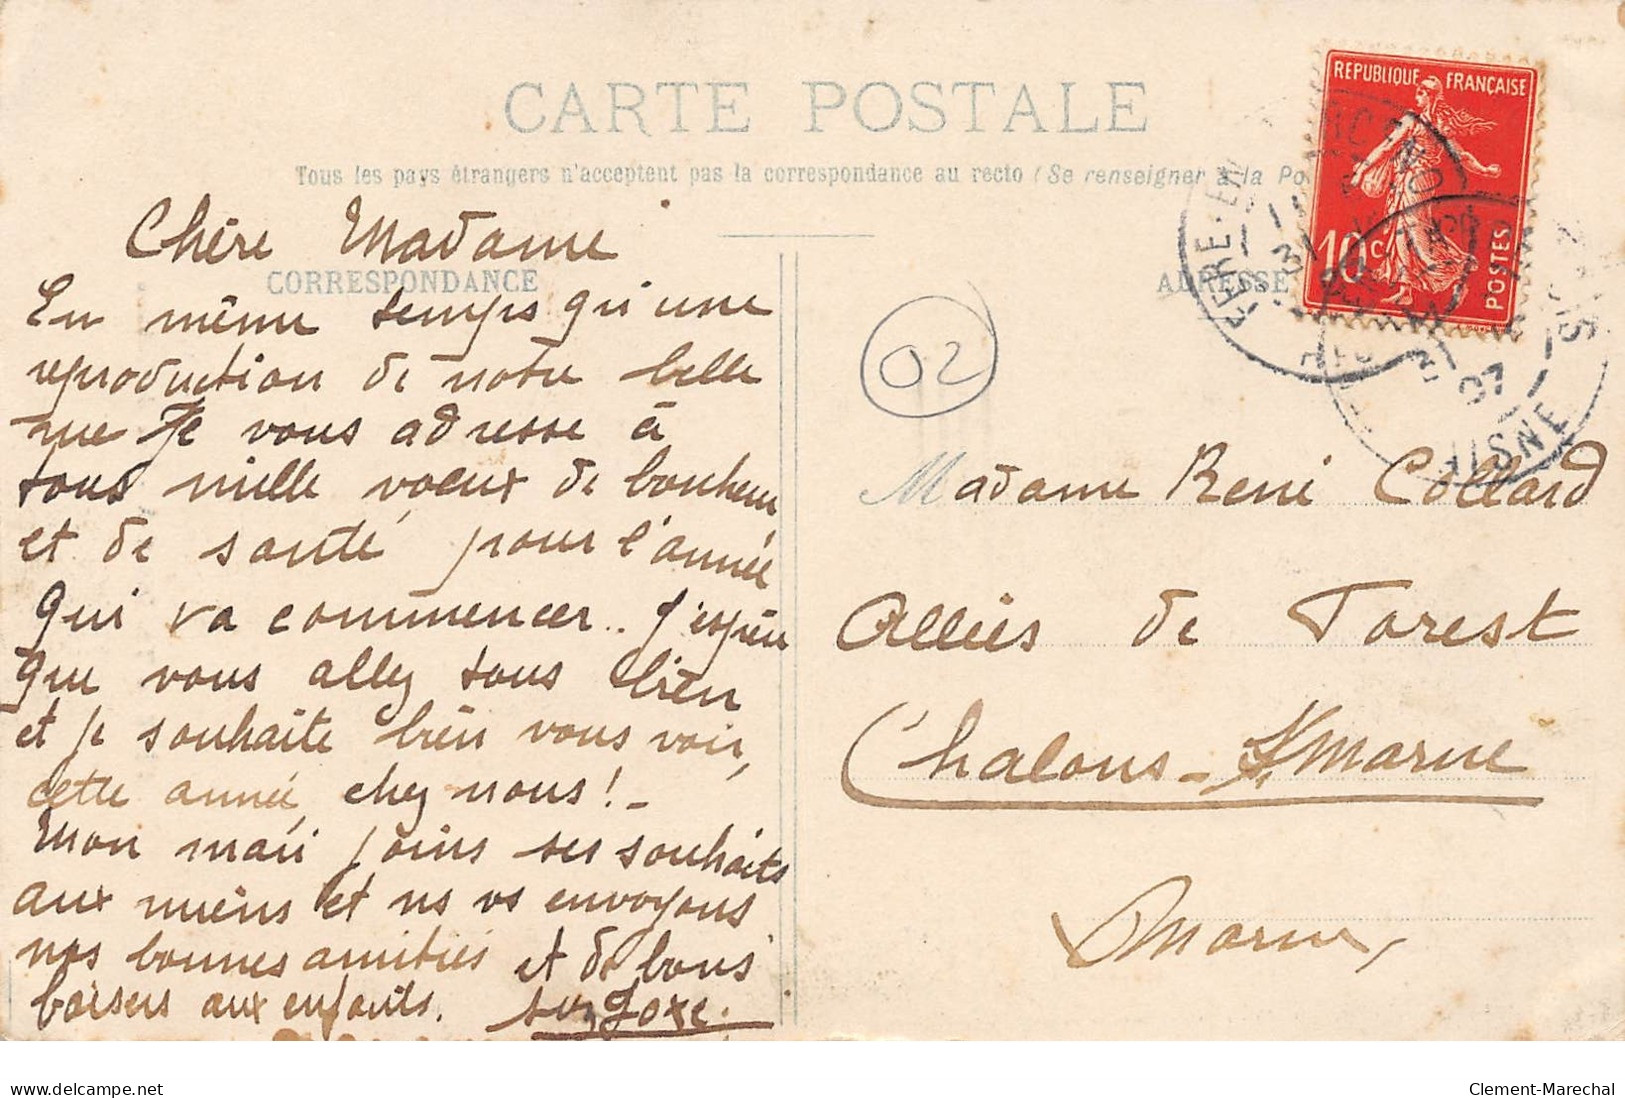 CARTE POSTALE
Tous les pays étrangers n'acceptent pas la correspondance au recto (Se renseigner à la Po
CORRESPONDANCE
Chère Madame
En même temps qu'une
reproduction de notre belle
que Je vous adresse à
tous mille voeux de bonheur
et de santé pour l'année
qui va commencer.. J'espère
que vous allez tous bien
et je souhaite bien vous voir,
cette année, chez nous! -
Mon mari joins ses souhaits
aux miens et ns vs envoyons
nos bonnes amitiés et de bons
baisers aux enfants.
ADRESSE
REPUBLIQUE FRANÇAISE
10 c
POSTES
FERE-EN
AISNE
31
07
02
Madame René Collard
Allées de Forest
Chalons-s/Marne
Marne
delcampe.net
Clement-Marechal